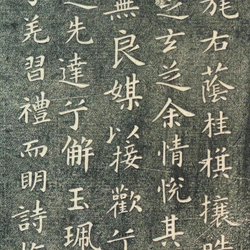 旄右蔭桂旗攘
之玄芝余情悅其
無良媒以接歡兮
之先達兮解玉珮
兮羌習禮而明詩